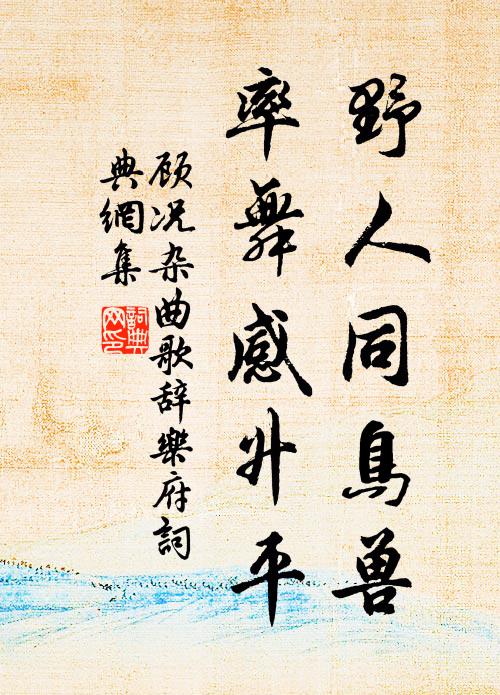 野人同鳥兽
率舞感升平
顾况杂曲歌辞樂府詞
典網集
詞典
网印